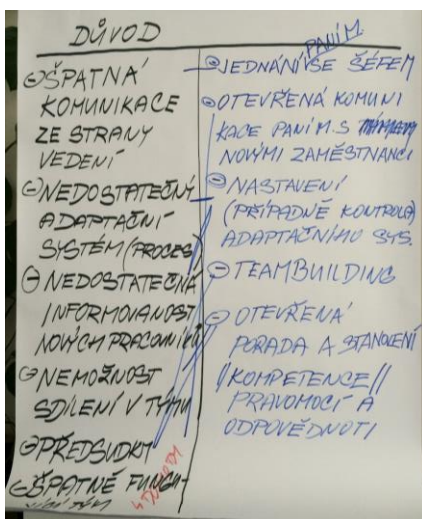 DŮVOD
ŠPATNÁ
KOMUNIKACE
ZE STRANY
VEDENÍ
NEDOSTATEČNÝ
ADAPTAČNÍ
SYSTÉM (PROCES)
NEDOSTATEČNÁ
INFORMOVANOST
NOVÝCH PRACOVNÍKŮ
NEMOŽNOST
SDÍLENÍ V TÝMU
PŘEDSUDKY
ŠPATNĚ FUNGU-
JÍCÍ TÝM
PANÍ M.
JEDNÁNÍ SE ŠÉFEM
OTEVŘENÁ KOMUNI
KACE PANÍ M. S
NOVÝMI ZAMĚSTNANCI
NASTAVENÍ
(PŘÍPADNĚ KONTROLA)
ADAPTAČNÍHO SYS.
TEAMBUILDING
OTEVŘENÁ
PORADA A STANOVENÍ
//KOMPETENCE//
PRAVOMOCÍ A
ODPOVĚDNOTI